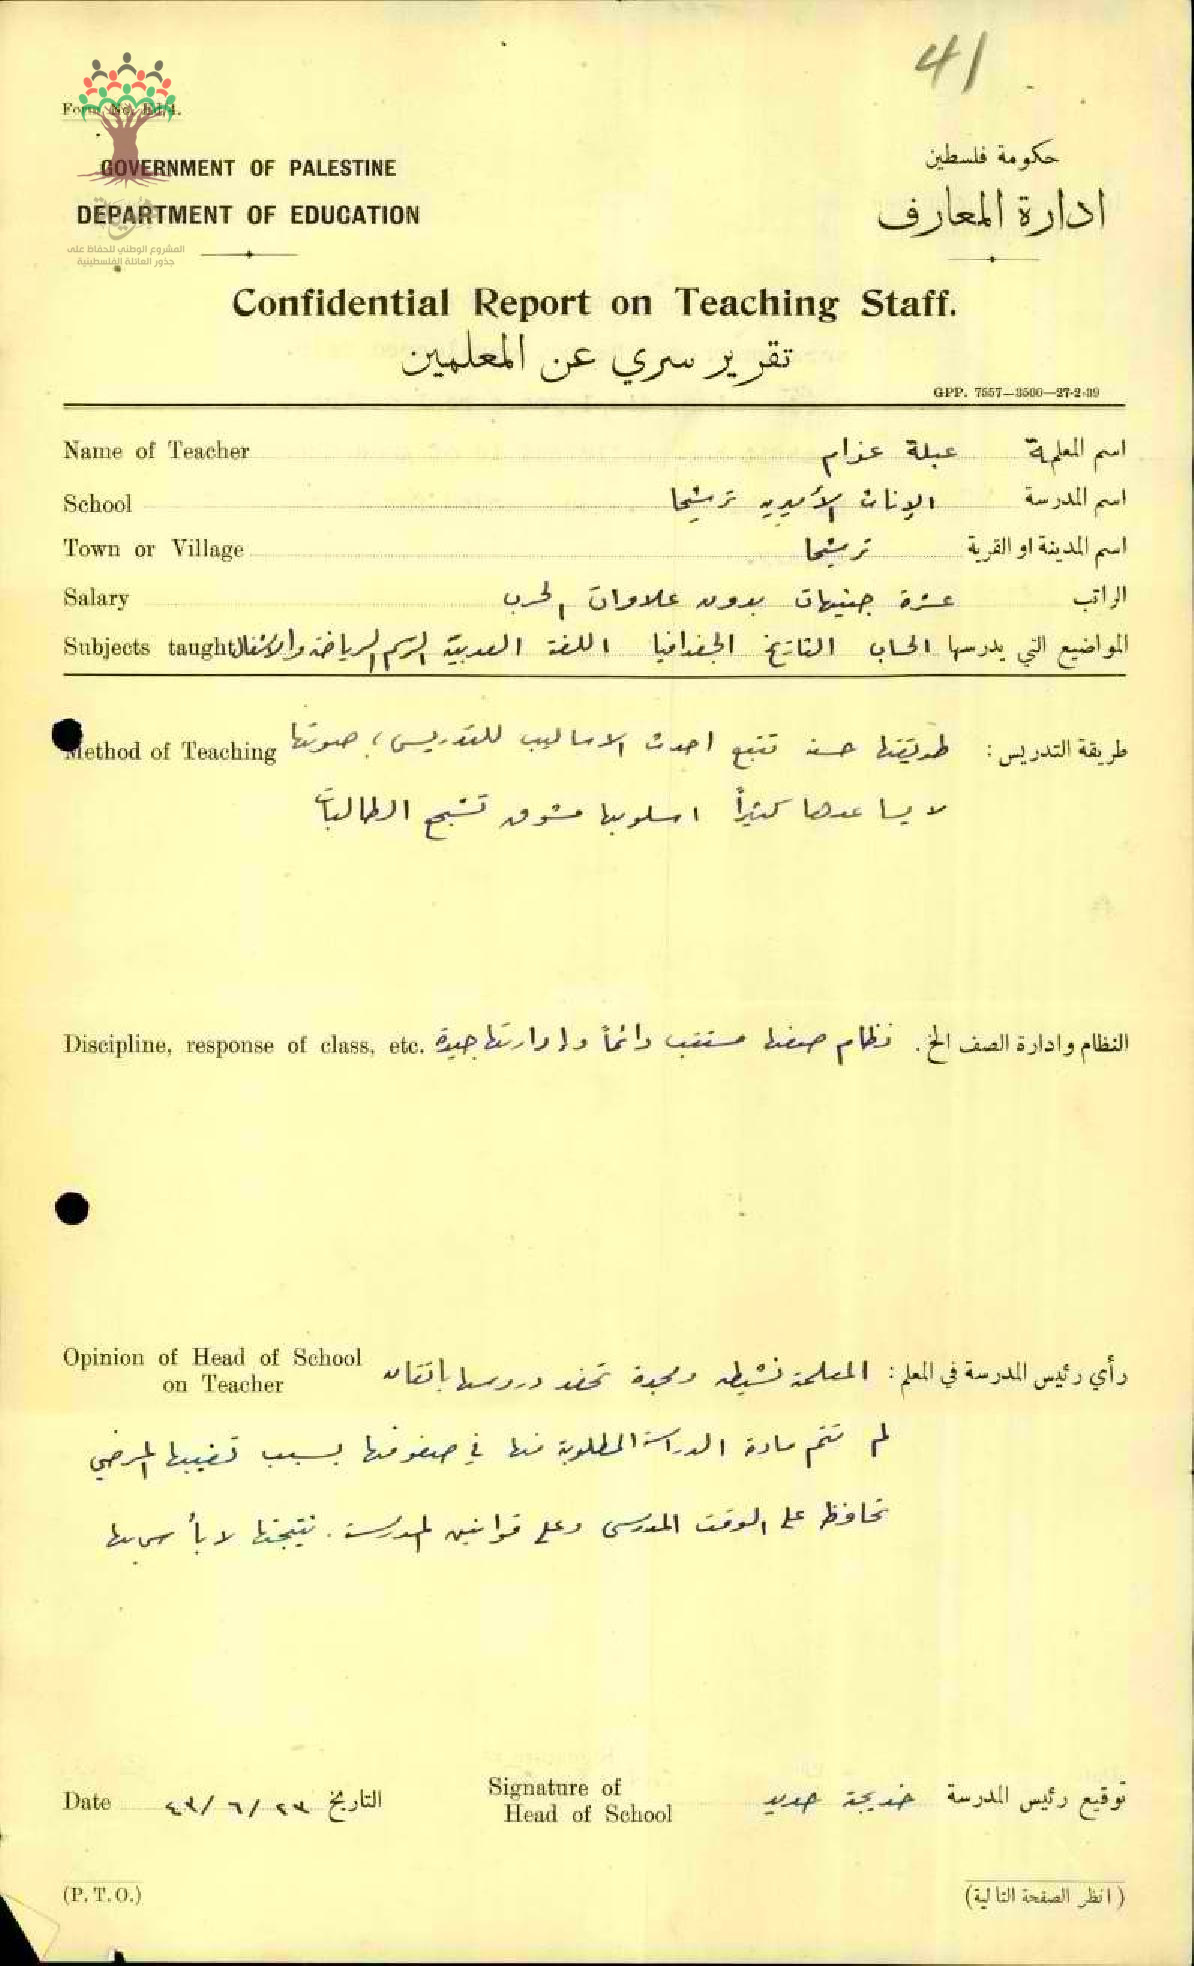 41
Form No. Ed/4.
GOVERNMENT OF PALESTINE
حكومة فلسطين
DEPARTMENT OF EDUCATION
ادارة المعارف
هوية
المشروع الوطني للحفاظ على
جذور العائلة الفلسطينية
Confidential Report on Teaching Staff.
تقرير سري عن المعلمين
GPP. 7557—3500—27-2-39
Name of Teacher عبلة عزام اسم المعلمة
School الإناث الأميرية ترشيحا اسم المدرسة
Town or Village ترشيحا اسم المدينة او القرية
Salary عشرة جنيهات بدون علاوات الحرب الراتب
Subjects taught المواضيع التي يدرسها الحساب التاريخ الجغرافيا اللغة العربية الرسم الرياضة والاشغال
Method of Teaching طريقة التدريس : طريقتها حسنة تتبع احدث الاساليب للتدريس، صوتها
لا يساعدها كثيراً اسلوبها مشوق تشجع الطالبات
Discipline, response of class, etc. النظام وادارة الصف الخ. نظام صفها مستتب دائماً وإدارتها جيدة
Opinion of Head of School
on Teacher
رأي رئيس المدرسة في المعلم : المعلمة نشيطة ومجدة تحضر دروسها باتقان
لم تتم مادة الدراسة المطلوبة منها في صفوفها بسبب تغيبها المرضي
تحافظ على الوقت المدرسي وعلى قوانين المدرسة. نتيجتها لا بأس بها
Date ٢٣/٦/٤٣ التاريخ
Signature of
Head of School
توقيع رئيس المدرسة خديجة حديد
(P. T. O.)
(انظر الصفحة التالية)